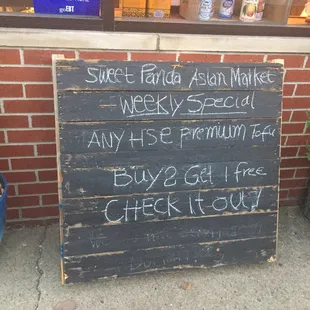 goEBT
Sweet Panda Asian Market
Weekly Special
ANY HSE premium Tofu
Buy 2 Get 1 free
CHECK IT OUT!